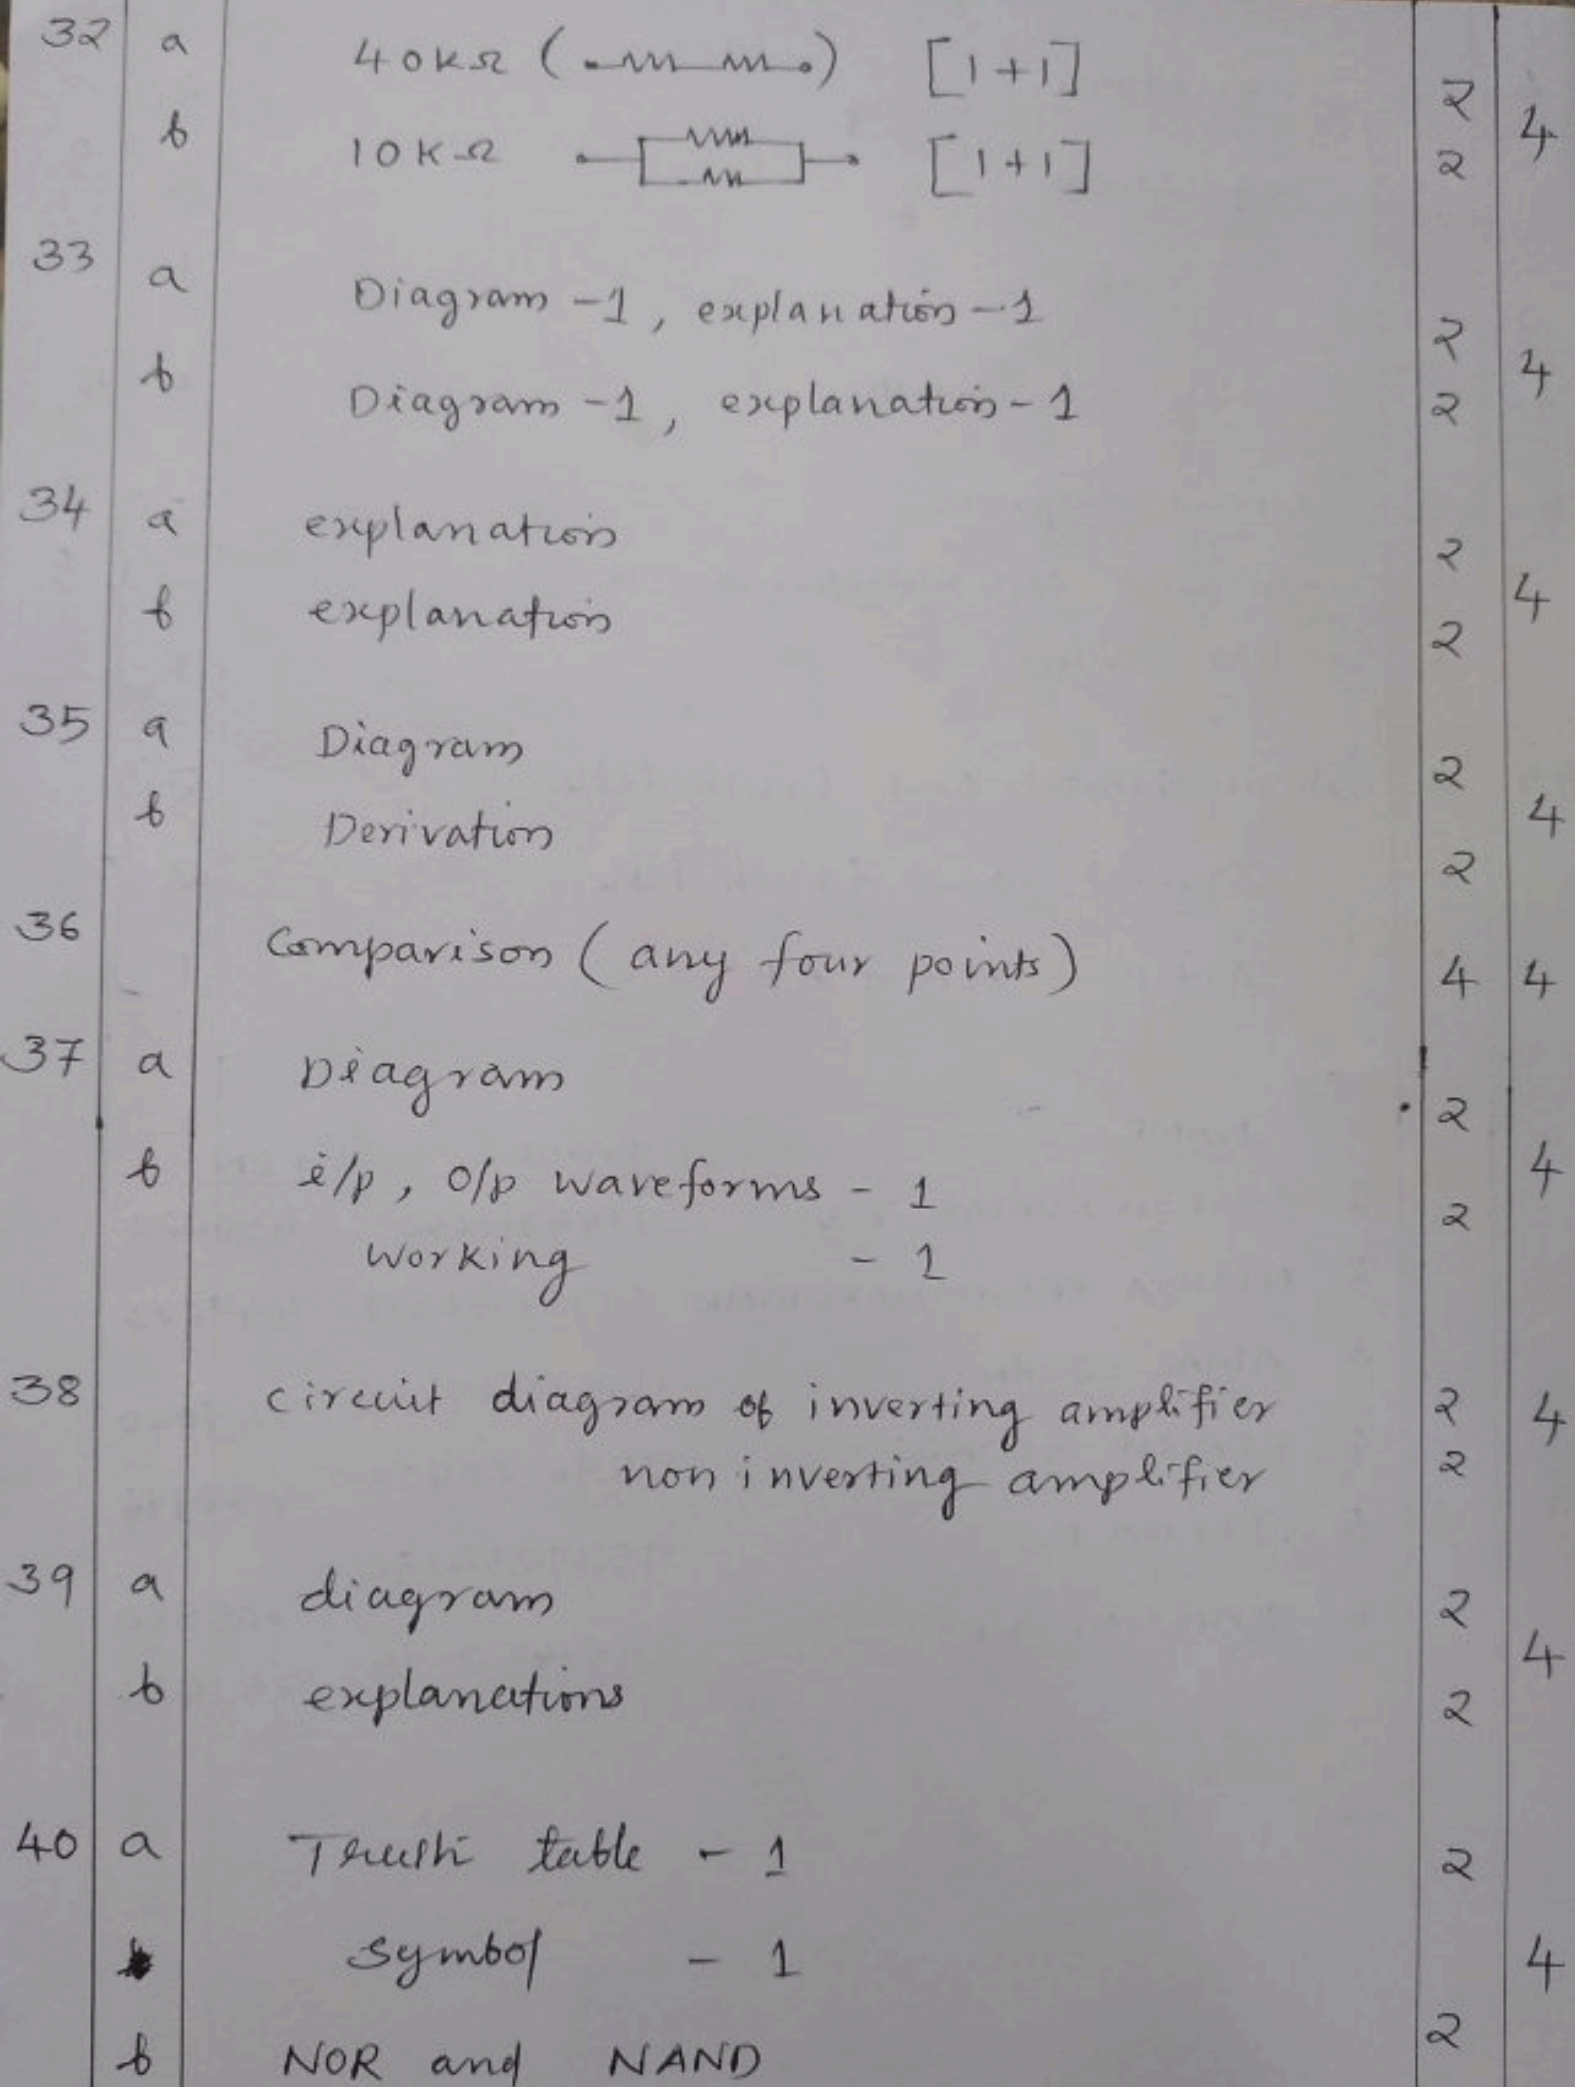 32 a 40KΩ ( ) [1+1] 2
b 10KΩ [1+1] 2 4
33 a Diagram -1, explanation -1 2
b Diagram -1, explanation - 1 2 4
34 a explanation 2
b explanation 2 4
35 a Diagram 2
b Derivation 2 4
36 Comparison (any four points) 4 4
37 a Diagram 2
b i/p, o/p waveforms - 1 2 4
working - 1
38 circuit diagram of inverting amplifier 2 4
non inverting amplifier 2
39 a diagram 2
b explanations 2 4
40 a Truth table - 1 2
symbol - 1 4
b NOR and NAND 2